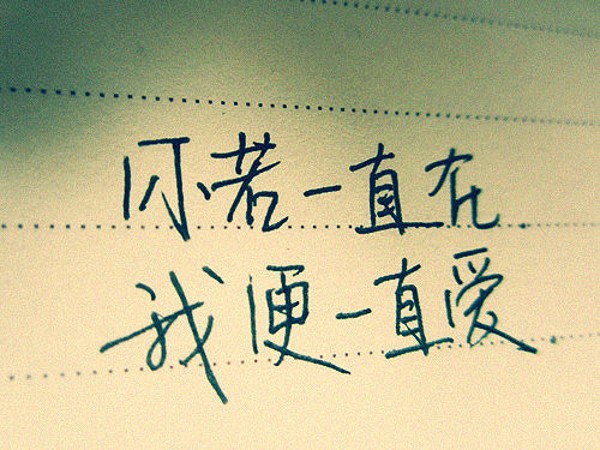 闪若一直在.
我便一直爱.